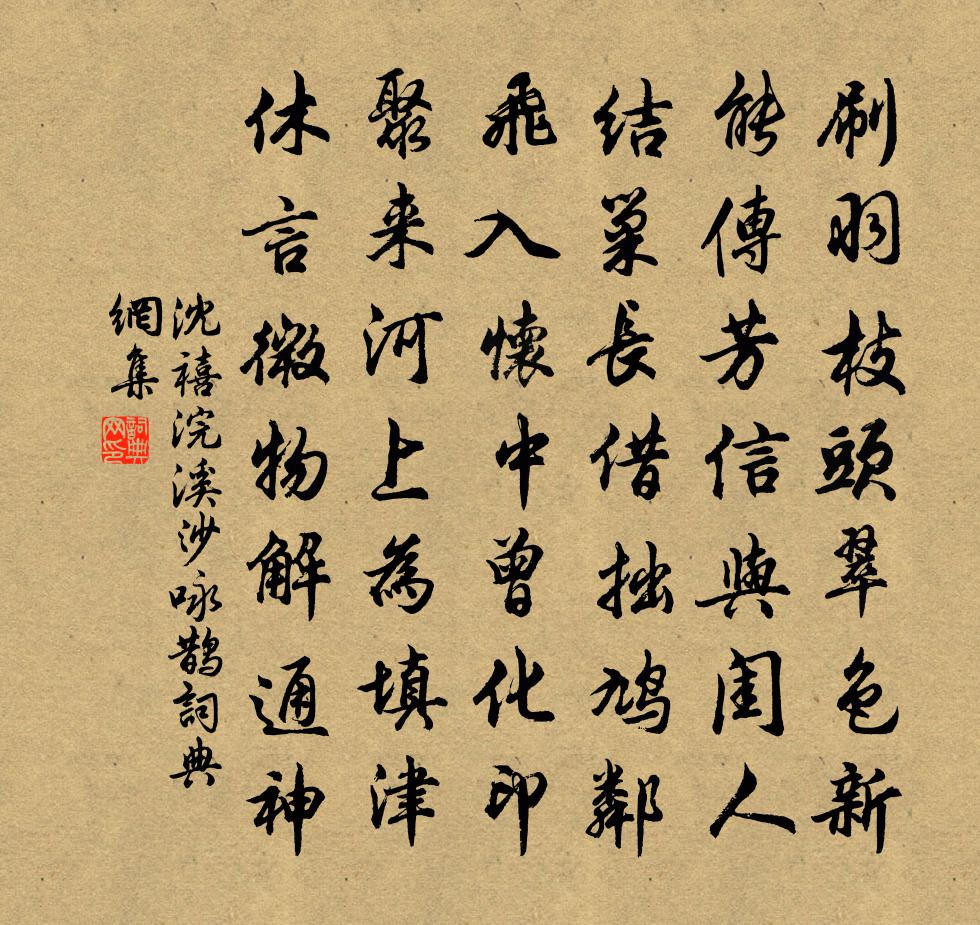 刷羽枝頭翠色新
能傳芳信與閨人
结巢長借拙鳩鄰
飛入懷中曾化印
聚来河上為填津
休言微物解通神
沈禧浣溪沙咏鵲詞典
網集
詞典
网印